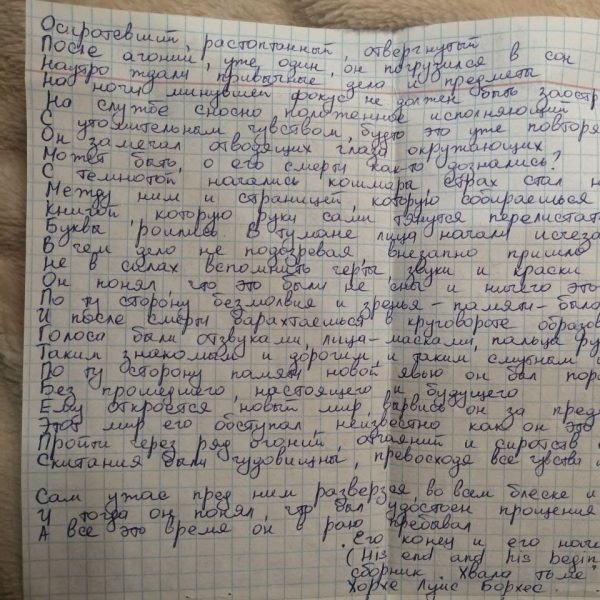 Осиротевший, растоптанный, отвергнутый
После агоний, уже один, он погрузился в сон
Наутро ждали привычные дела и предметы
На ночи минувшей фокус не должен быть заостр
На службе сносно положенные исполняющий
С утомительным чувством, будто это уже повторя
Он замечал отводящих глаза окружающих
Может быть, о его смерти как-то дознались?
С темнотой начались кошмары, страх стал н
Между ним и страницей, которую собираешься
Книгой, которую руки сами тянутся перелистат
Буквы роились в тумане, лица начали исчеза
В чем дело не подозревая, внезапно пришло
Не в силах вспомнить черты, звуки и краски
Он понял, что это были не сны и ничего это
По ту сторону безмолвия и зренья - памяти - было
И после смерти барахтаешься в круговороте образов
Голоса были отзвуками, лица - масками, пальцы ру
Таким знакомым и дорогим, и таким смутным
По ту сторону памяти новой явью он был пор
Без прошедшего, настоящего и будущего
Ему откроется новый мир, вырвись он за пред
Этот мир его обступал, неизвестно как он это
Пройти через ряд агоний, отчаяний и сиротств
Скитания были чудовищны, превосходя все чувства
Сам ужас пред ним разверзся, во всем блеске и
И тогда он понял, что был удостоен прощения
А все это время он в раю пребывал
. Его конец и его нача
(His end and his begin
сборник. Хвала тьме
Хорхе Луис Борхес.